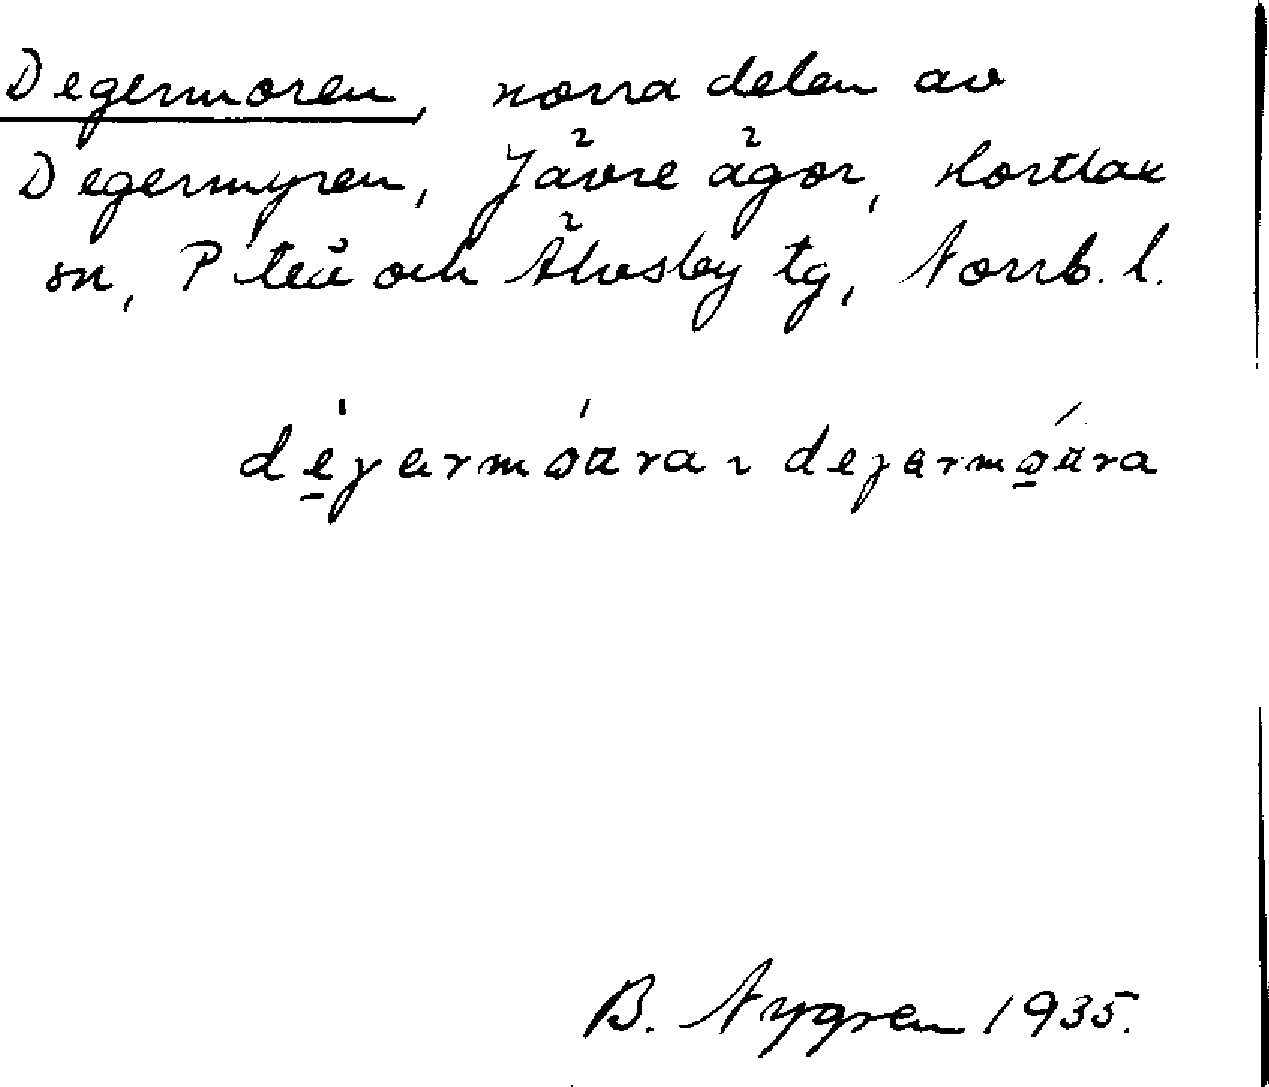 Degermoren, norra delen av
Degermyren, Jävre ägor, Hortlax
sn, Piteå och Älvsby tg, Norrb. l.
B. Nygren 1935.